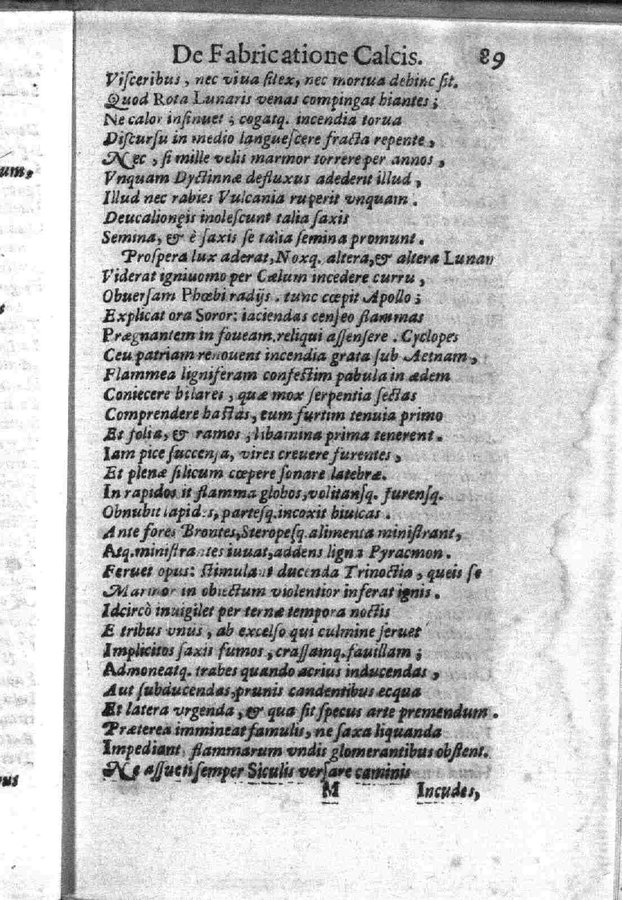 De Fabricatione Calcis. 89
Visceribus, nec viua silex, nec mortua dehinc fit.
Quod Rota Lunaris venas compingat hiantes;
Ne calor insinuet; cogatq. incendia torua
Discursu in medio languescere fracta repente,
Nec, si mille velis marmor torrere per annos,
Vnquam Dyctinnæ defluxus adederit illud,
Illud nec rabies Vulcania ruperit vnquam.
Deucaliongis inolescunt talia saxis
Semina, & è saxis se talia semina promunt.
Prospera lux aderat, Noxq. altera, & altera Lunam
Viderat igniuomo per Cælum incedere curru,
Obuersam Phœbi radijs. tunc cœpit Apollo;
Explicat ora Soror: iaciendas censeo flammas
Prægnantem in foueam. reliqui assensere. Cyclopes
Ceu patriam renouent incendia grata sub Aetnam,
Flammea ligniferam confestim pabula in ædem
Coniecere hilares, quæ mox serpentia sectas
Comprendere hastas, cum furtim tenuia primo
Et folia, & ramos; libamina prima tenerent.
Iam pice succensa, vires creuere furentes,
Et plenæ silicum cœpere sonare latebræ.
In rapidos it flamma globos, volitansq. furensq.
Obnubit lapides, partesq. incoxit hiulcas.
Ante fores Brontes, Steropesq. alimenta ministrant,
Atq. ministrantes iuuat, addens ligna Pyracmon.
Feruet opus: stimulant ducenda Trinoctia, queis se
Marmor in obiectum violentior inferat ignis.
Idcircò inuigilet per ternæ tempora noctis
E tribus vnus, ab excelso qui culmine seruet
Implicitos saxis fumos; crassamq. fauillam;
Admoneatq. trabes quando acrius inducendas,
Aut subducendas, prunis candentibus ecqua
Et latera vrgenda, & qua sit specus arte premendum.
Præterea immineat famulis, ne saxa liquanda
Impediant, flammarum vndis glomerantibus obstent.
Ne assueti semper Siculis versare caminis
M Incudes,
um,
us